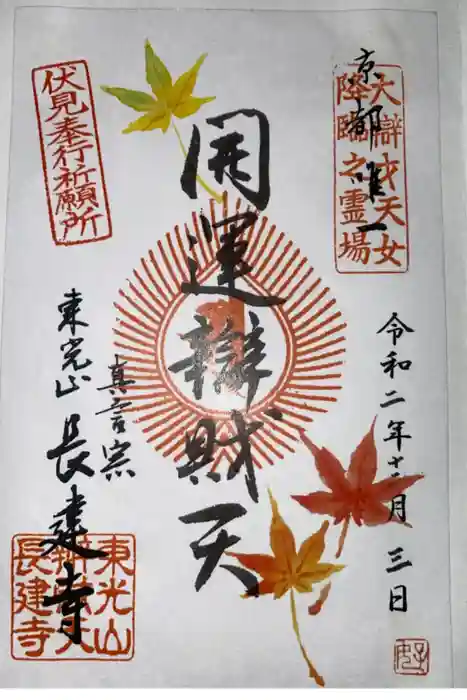 京都唯一
大辯才天女
降臨之霊場
令和二年十二月三日
開運辯財天
伏見奉行祈願所
真言宗
東光山
長建寺
東光山
辨財天
長建寺